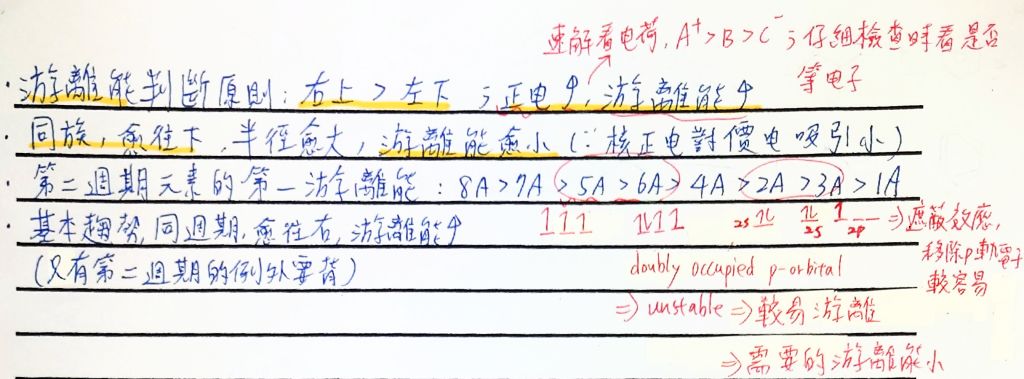 速解看电荷, A⁺>B>C⁻ ; 仔細檢查時看是否
等电子
· 游離能判斷原則: 右上 > 左下 ; 正电↑, 游離能↑
· 同族, 愈往下, 半徑愈大, 游離能愈小 (∵核正电對價电吸引小)
· 第二週期元素的第一游離能 : 8A>7A>5A>6A>4A>2A>3A>1A
· 基本趨勢, 同週期, 愈往右, 游離能↑
1 1 1 1L 1 1 2s 1L 1L 2s 1 2p ⇒遮蔽效應,
移除p軌電子
較容易
(只有第二週期的例外要背)
doubly occupied p-orbital
⇒ unstable ⇒ 較易游離
⇒ 需要的游離能小